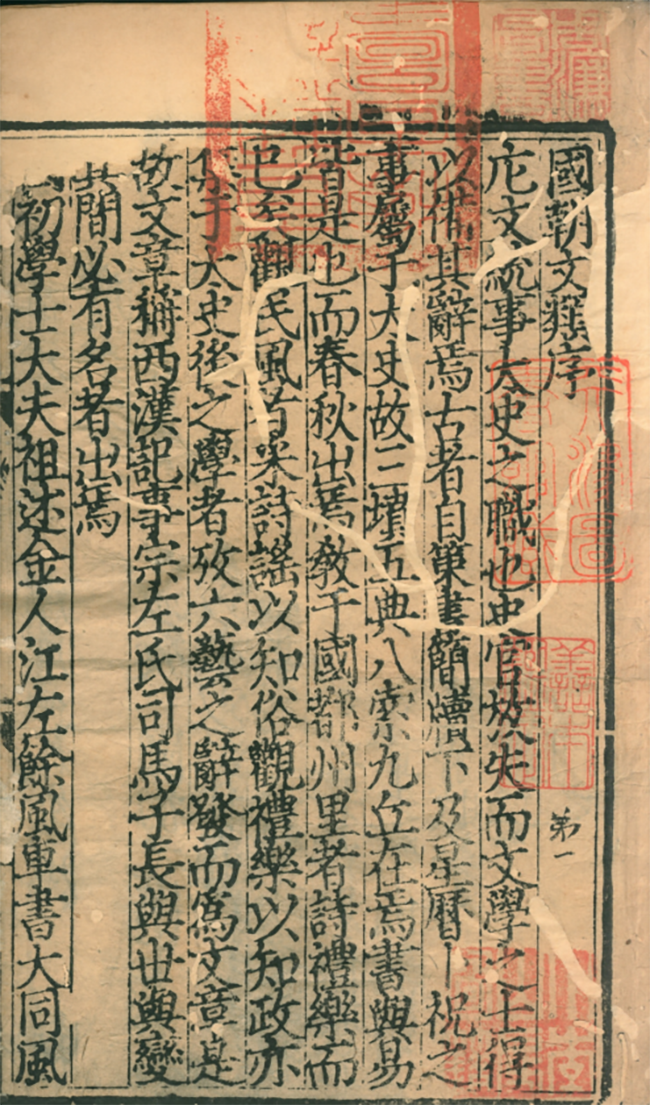 國朝文類序
第一
庀文統事大史之職也史官放失而文學之士得
以備其辭焉古者自策書簡牘下及星曆卜祝之
事屬于大史故三墳五典八索九丘在焉書與易
皆是也而春秋出焉教于國都州里者詩禮樂而
已至觀民風者采詩謠以知俗觀禮樂以知政亦
集于大史後之學者攷六藝之辭發而爲文章是
故文章稱西漢記事宗左氏司馬子長與世與變
其間必有名者出焉
初學士大夫祖述金人江左餘風車書大同風